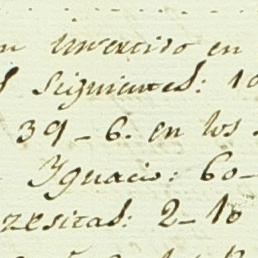 n invertido en
s siguientes: 10
39-6. en los
Ygnacio: 60-
zesitas: 2-10